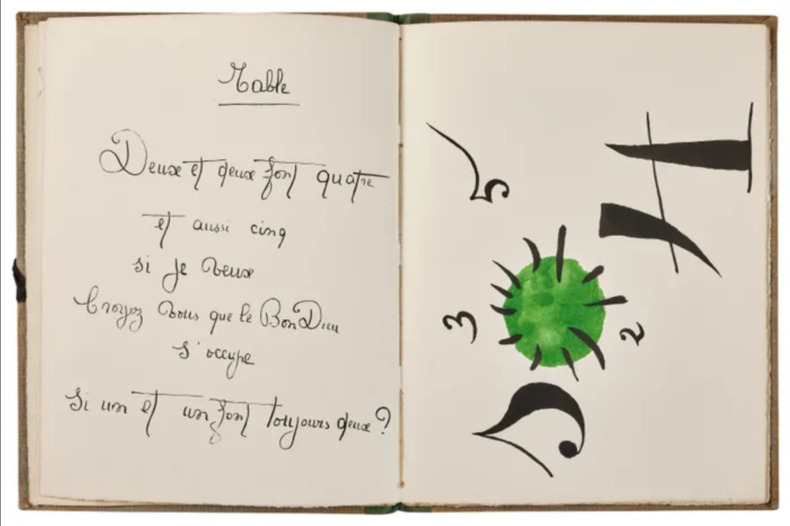 Table
Deux et deux font quatre
et aussi cinq
si je veux
Croyez vous que le Bon Dieu
s'occupe
Si un et un font toujours deux?
5
4
3
2
2